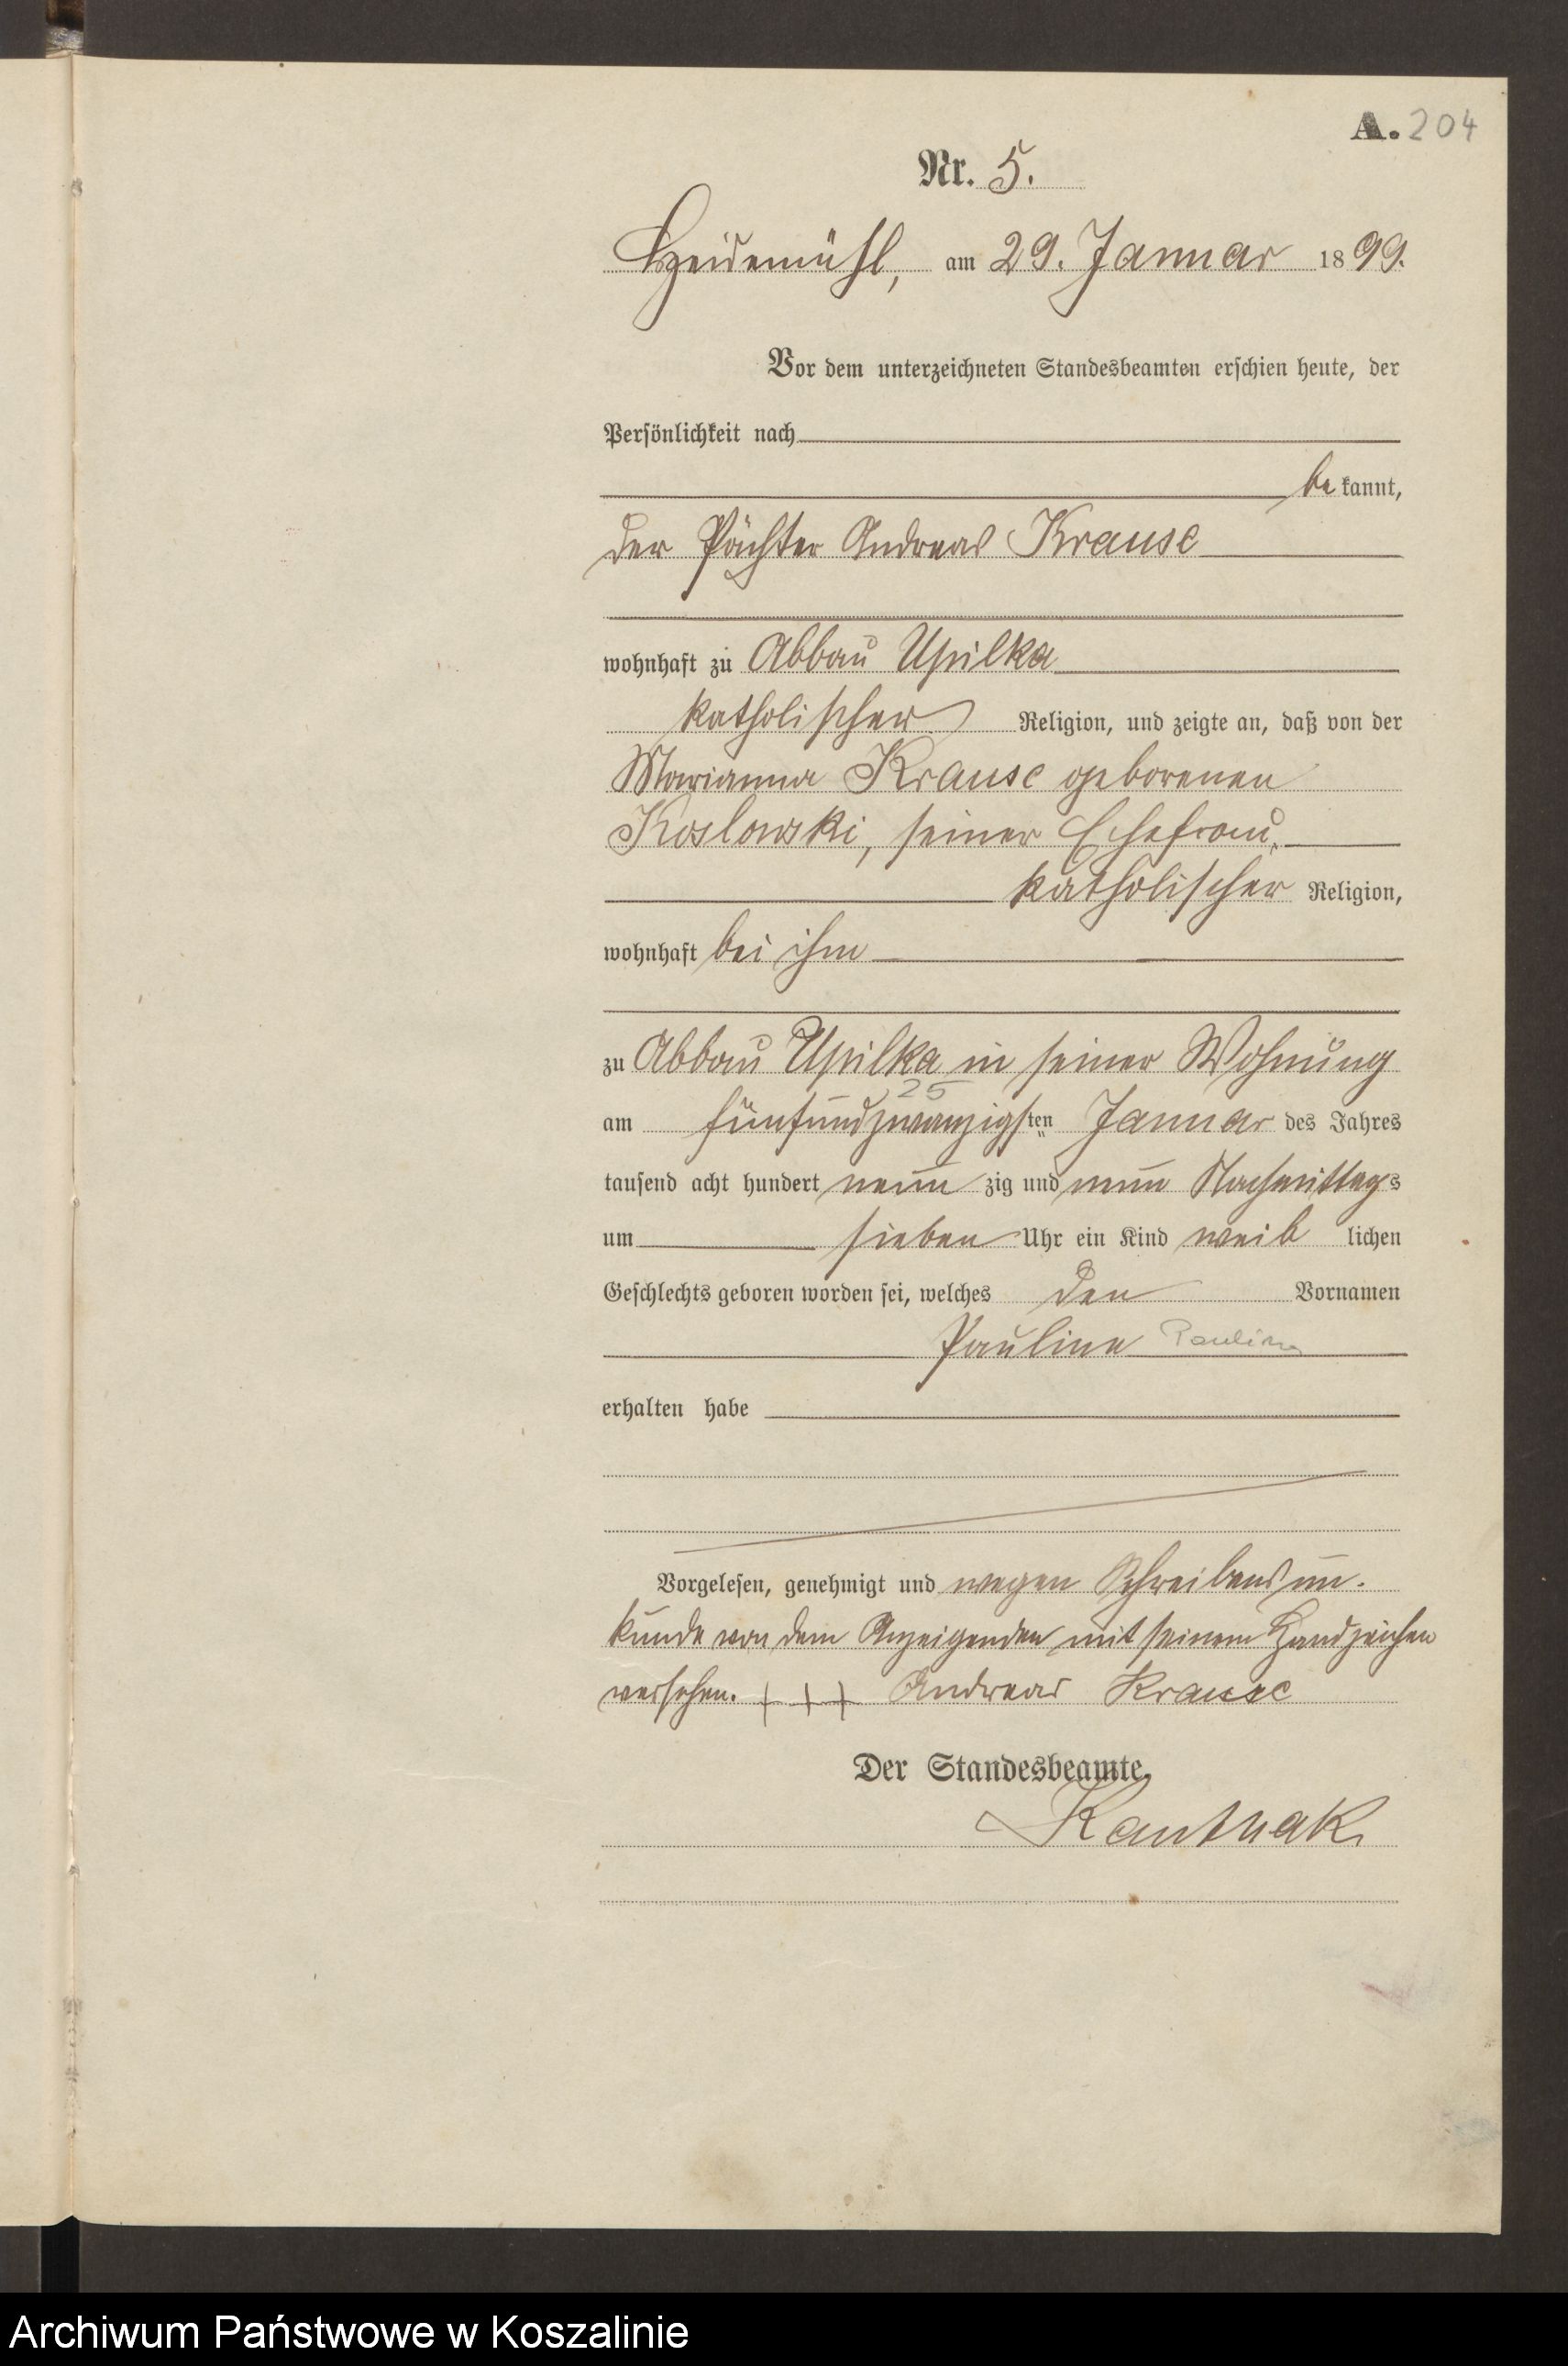 A. 204
Nr. 5.
Heidemühl, am 29. Januar 1899.
Vor dem unterzeichneten Standesbeamten erschien heute, der
Persönlichkeit nach
be kannt,
der Pächter Andreas Krause
wohnhaft zu Abbau Upilka
katholischer Religion, und zeigte an, daß von der
Marianna Krause geborenen
Koslowski, seiner Ehefrau,
katholischer Religion,
wohnhaft bei ihm
zu Abbau Upilka in seiner Wohnung
25
am fünfundzwanzigsten Januar des Jahres
tausend acht hundert neun zig und neun Nachmittags
um sieben Uhr ein Kind weib lichen
Geschlechts geboren worden sei, welches den Vornamen
Pauline Paulina
erhalten habe
Vorgelesen, genehmigt und wegen Schreibensun-
kunde von dem Anzeigenden mit seinem Handzeichen
versehen. + + + Andreas Krause
Der Standesbeamte.
Kanthak
Archiwum Państwowe w Koszalinie